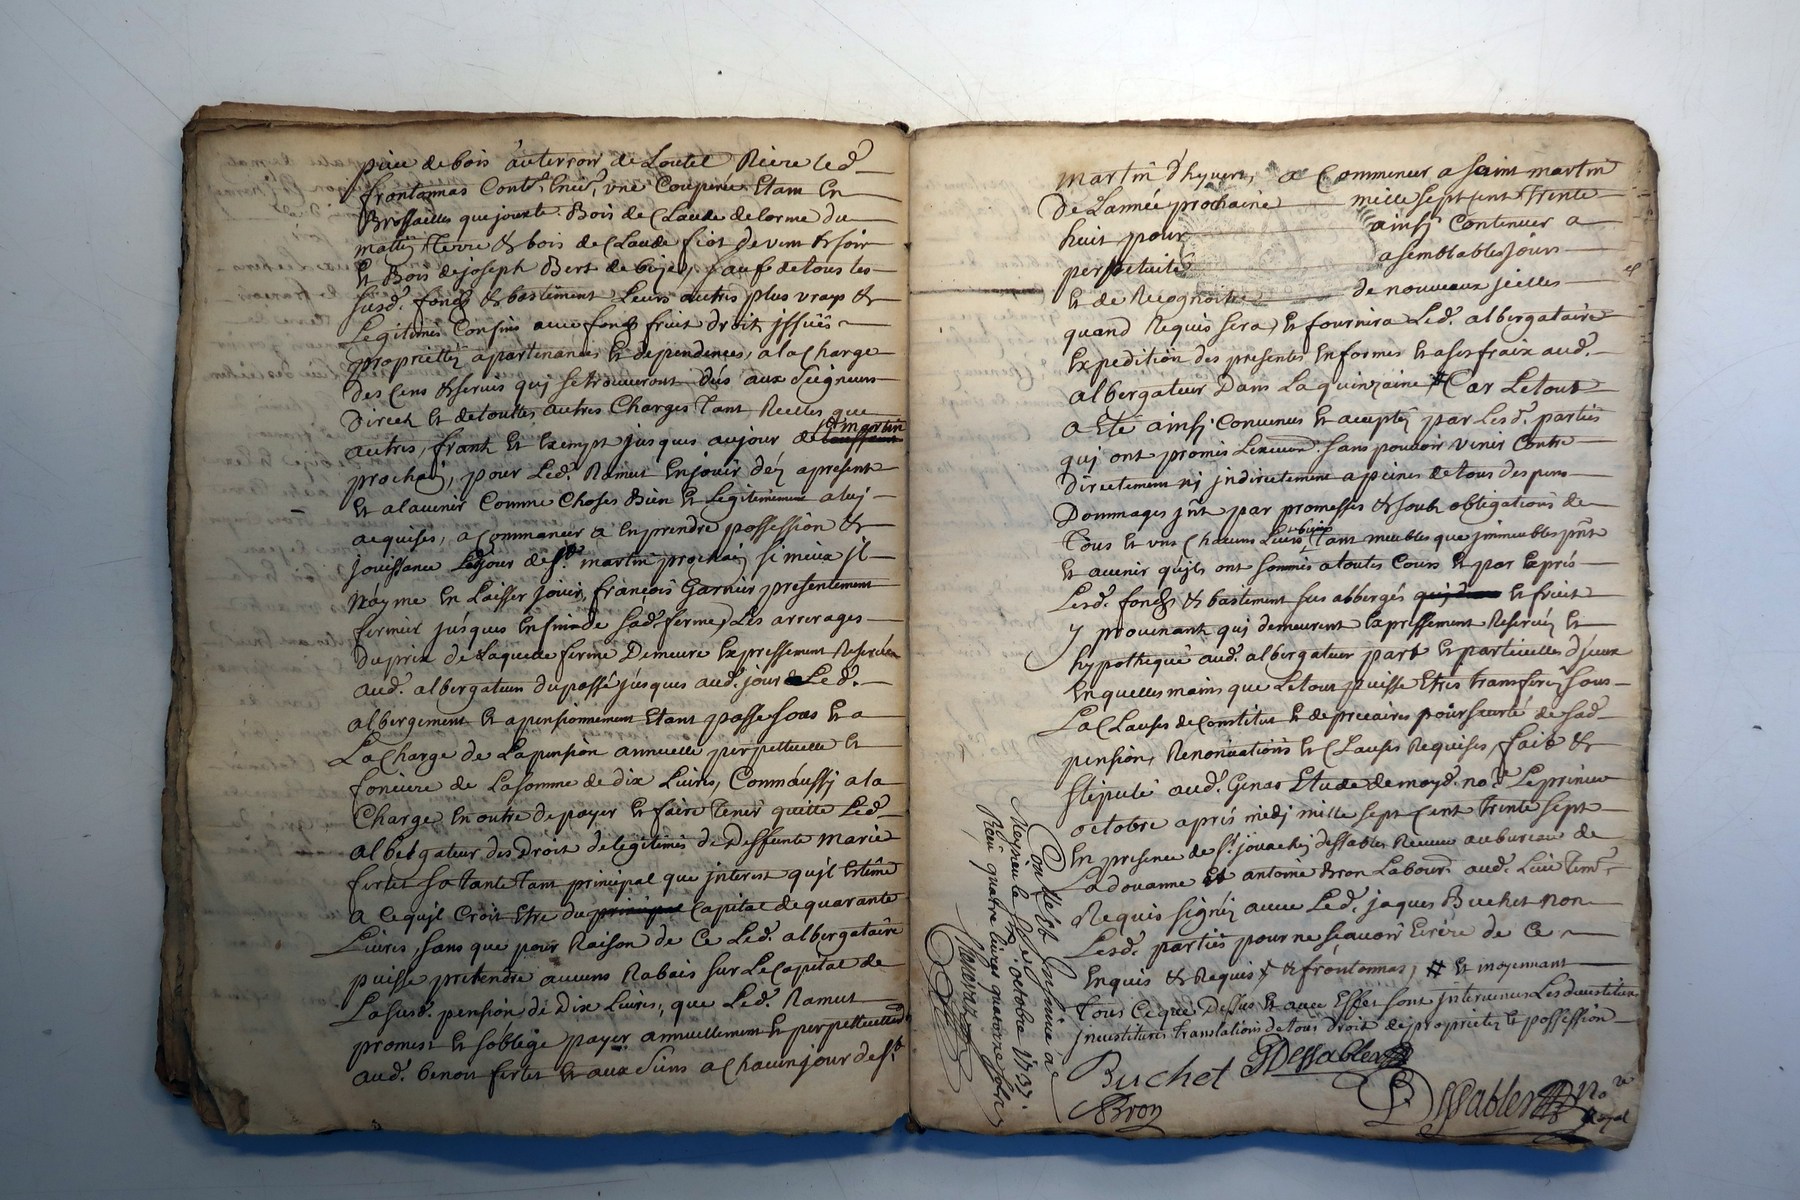 piece de bois au terroir de Loutel Riere led.
frontonnas Contt. Enir. une Couperée Etant En
Brossailles que jouxte Bois de Claude delorme du
mattin Terre & bois de Claude fiot de vent & soir
Et Bois de joseph Bert de bize, sauf de tous les
susd. fonds & bastiment Leurs autres plus vrays &
Legitimes Confins avec fonds fruit droit jssues
proprietéz apartenances Et dependences, a la Charge
Des Cens & servis quj se trouveront dûs aux seigneurs
Direct Et de touttes autres Charges Tant Reelles que
autres, frank Et Exempt jusques au jour de st martin
prochain, pour Led. Ramut En jouir dez a present
Et a lavenir Comme Choses Bien Et Legitimement a luj
acquises, a Commancer a En prendre possession &
jouissance Le jour de st. martin prochain si mieux jl
N'ayme En Laisser jouir, francois Garnier presentement
fermier jusques En fin de sad. ferme, Les arrerages
Du prix de Laquelle ferme Demeure Expressement Reservéz
aud. albergateur du passé jusques aud. jour Led.
albergement Et apensionnement Etant passe sous Et a
La Charge de La pension annuelle perpettuelle Et
fonciere de La somme de dix Livres, Comm'aussj a la
Charge En outre de payer Et faire Tenir quitte Led.
albergateur des Droit de legitimes de Deffunte marie
fertet sa tante Tant principal que jnterest qu'jl Estime
a Ce qu'jl Croit Etre du principal Capital de quarante
Livres, sans que pour Raison de Ce Led. albergataire
puisse pretendre aucuns Rabais sur Le Capital de
La susd. pension de Dix Livres, que Led. Ramut
promest Et s'oblige payer annuellement Et perpettuellem.
aud. benoit fertet Et aux siens a Chacun jour de st.
martin d'hyvert, a Commencer a saint martin
De L'année prochaine mille sept cent Trente
huit pour ainsj Continuer a
perpetuité a semblables jours
Et de Recognoitre de nouveaux jcelles
quand Requis sera, Et fournira Led. albergataire
Expedition des presentes En formes Et a ses fraix aud.
albergateur Dans La quinzaine # Car Le tout
a Eté ainsj Convenus Et acceptéz par Lesd. parties
quj ont promis Lexecuon. sans pouvoir venir Contre
Directement nj jndirectement a peines de tous despens
Dommages jnt. par promesses & soub obligations de
Tous Et uns Chacuns Leurs biens Tant meubles que jmmeubles pnt.
Et avenir qu'jls ont soumis a toutes Cours Et par Exprés
Lesd. fonds & bastiment sus abbergés Et fruit
y provenant quj demeurent Expressement Reservéz Et
hypothequé aud. albergateur part Et particuelles d'jceux
En quelles mains que Le tout puisse Etres transferéz sous
La Clauses de Constitut Et de precaires pour seurté de sad.
pension, Renonciations Et Clauses Requises, fait &
stipulé aud. Genas Etude de moyd. nore. Le premier
octobre aprés midj mille sept Cent Trente sept
En presence de sr. jouachin dessables Receveur au bureau de
La douanne Et antoine Bron Labour. aud. Lieu Tem.
Requis signéz avec Led. jaques Buchet non
Lesd. parties pour ne sçavoir Ecrire de Ce
Enquis & Requis & frontonnas, # Et moyennant
Tous Ce que Dessus Et avec Effet sont jntervenus Les devestitures
jnvestitures Translations de tous droit de proprietéz Et possession
Buchet JDessables
Bron
Dessables No.re
Royal
Con.lé Et Insinué a
Meyzieu le octobre 1737.
Recu quatre livres quatorze sols